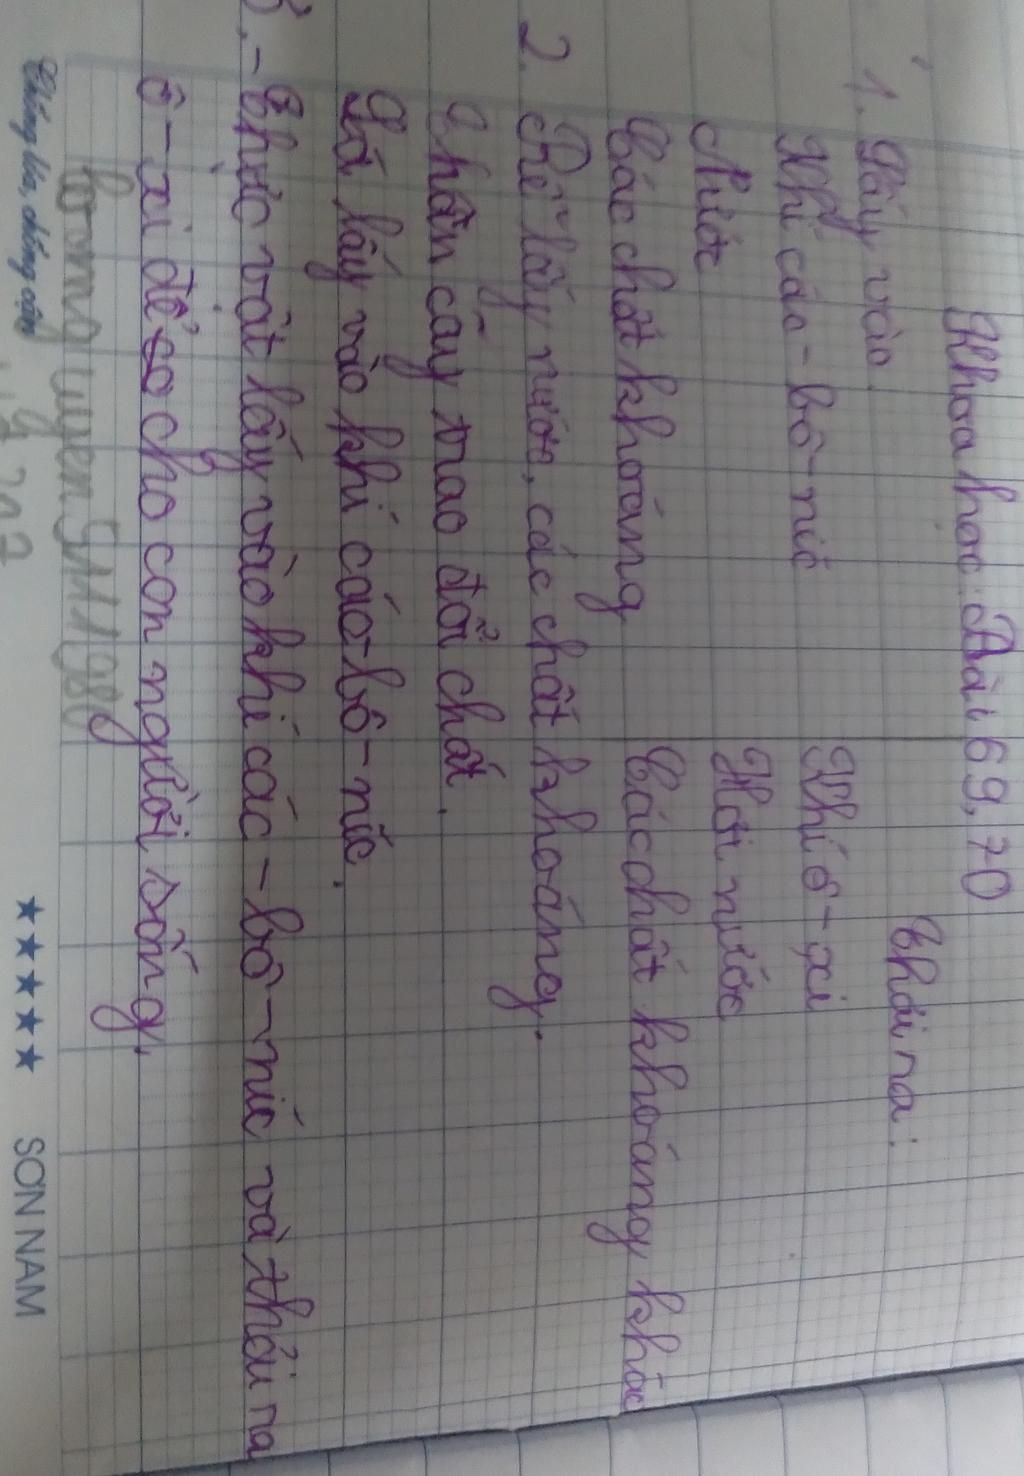 Khoa học: Bài 69, 70
1. Lấy vào Thải ra:
Khí các-bô-níc Khí ô-xi
Nước Hơi nước
Các chất khoáng Các chất khoáng khác
2. Rễ lấy nước, các chất khoáng.
Thân cây trao đổi chất.
Lá lấy vào khí các-bô-níc.
- Thực vật lấy vào khí các-bô-níc và thải ra
ô-xi để cho con người sống.
Chống lóa, chống cận ★★★★★ SƠN NAM